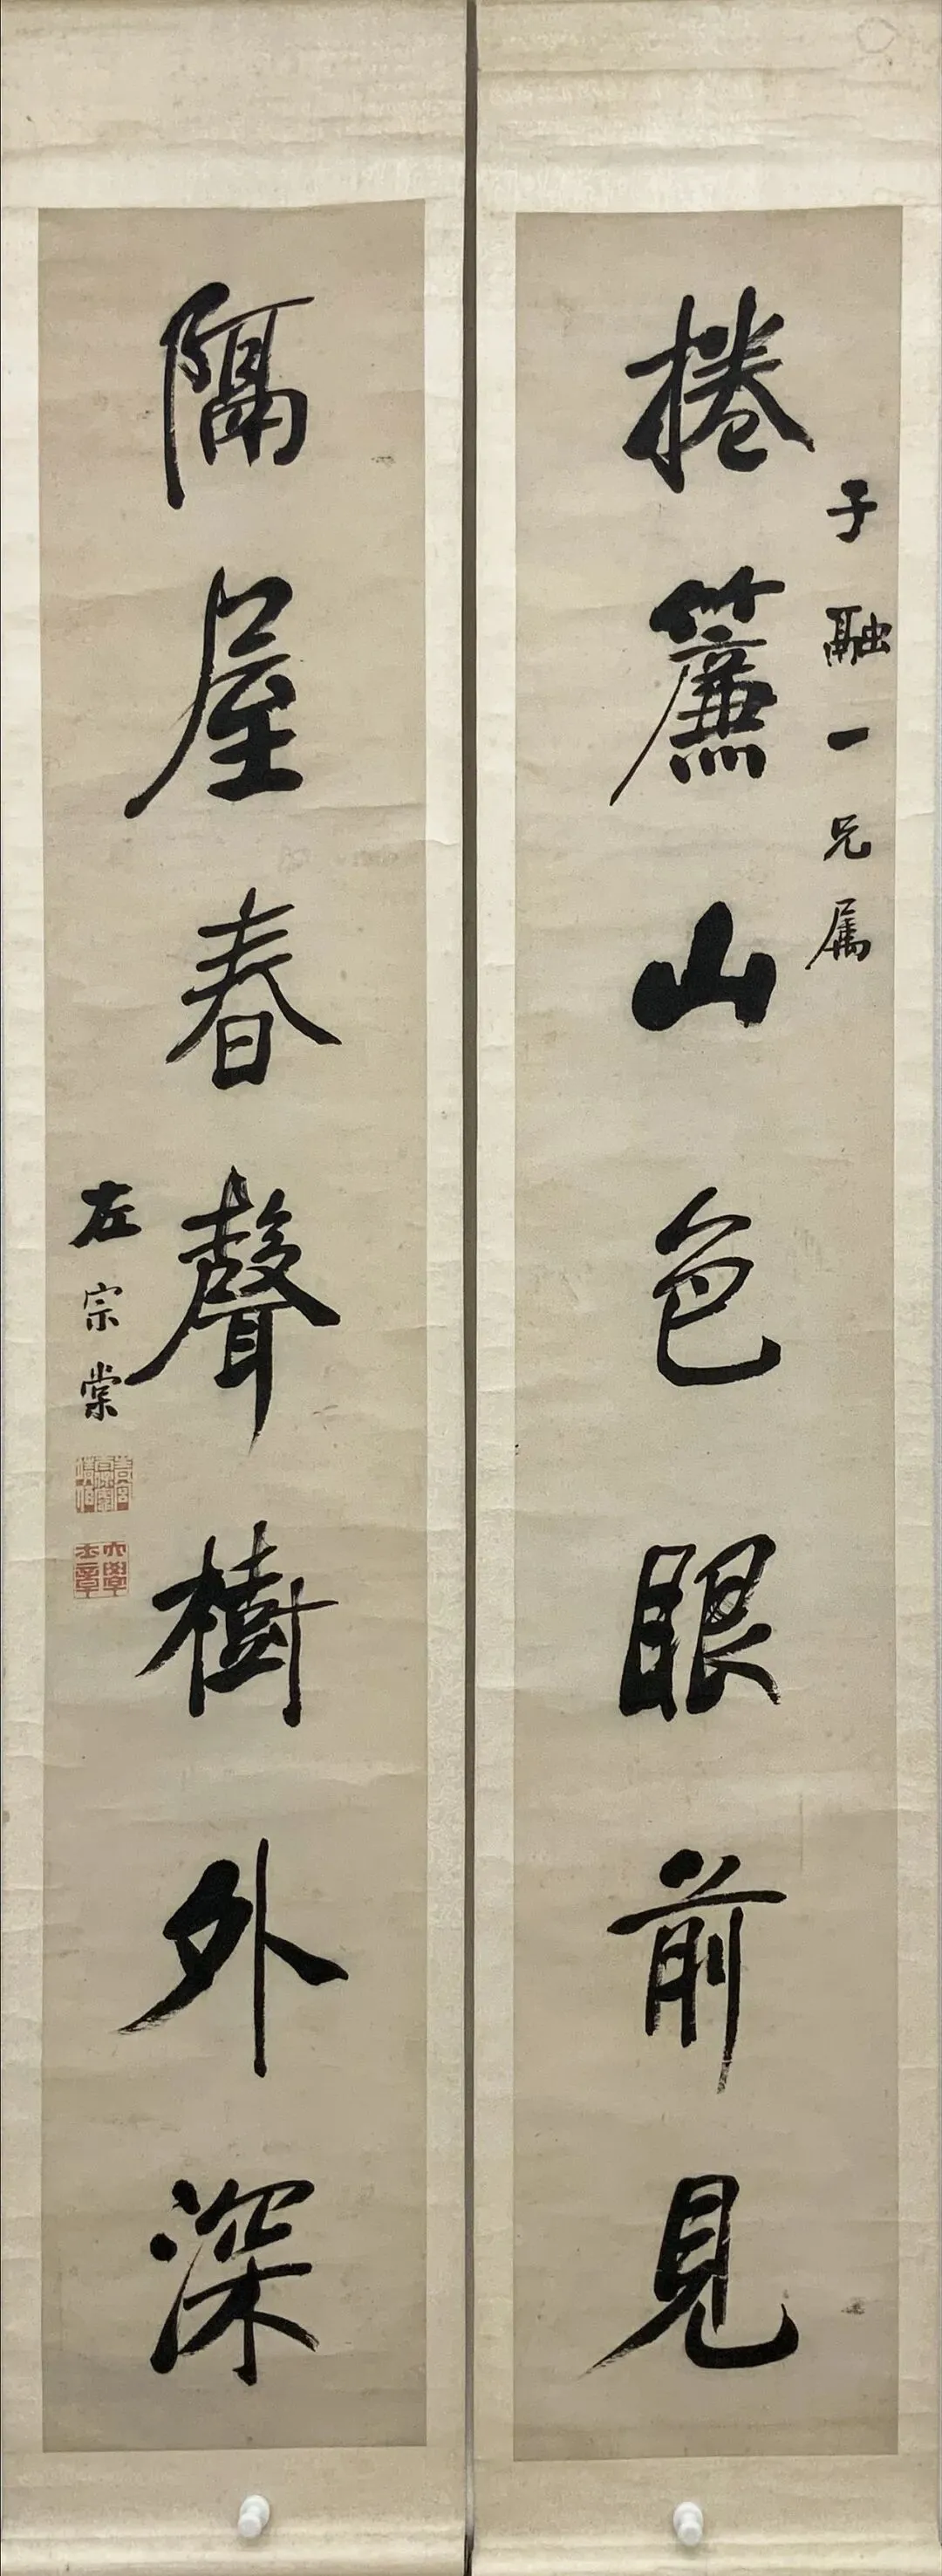 捲簾山色眼前見
子融一兄屬
隔屋春聲樹外深
左宗棠
大學士章